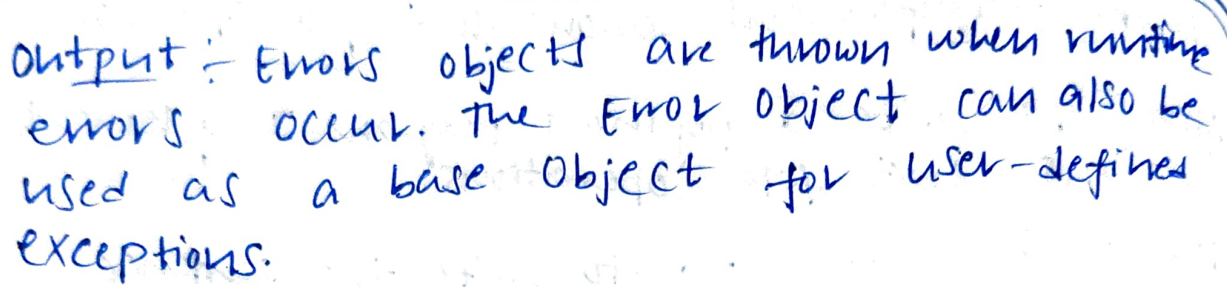 Output :- Errors objects are thrown when runtime
errors occur. The Error object can also be
used as a base object for user-defined
exceptions.